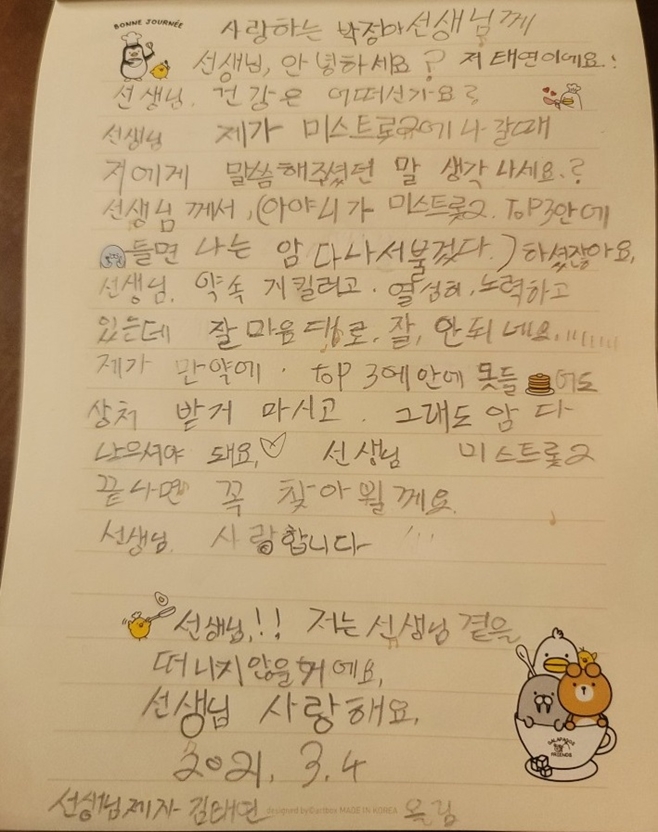 BONNE JOURNÉE
사랑하는 박정아선생님께
선생님, 안녕하세요? 저 태연이에요!
선생님. 건강은 어떠신가요?
선생님 제가 미스트롯2에 나갈때
저에게 말씀해주셨던 말 생각나세요.?
선생님께서, (아야 니가 미스트롯2. TOP3안에
들면 나는 암 다나서붙겄다.) 하셨잖아요,
선생님. 약속 지킬려고. 열심히, 노력하고
있는데 잘 마음대로, 잘, 안되네요,,,,,,,
제가 만약에. top 3에안에 못들 어도
상처 받거 마시고. 그래도 암 다
나으셔야 돼요,♡ 선생님 미스트롯2
끝나면 꼭 찾아뵐께요.
선생님. 사랑합니다 ,,,
선생님,!! 저는 선생님 곁을
떠나지않을거에요,
선생님 사랑해요.
2021. 3.4
GALAPAGOS FRIENDS
선생님제자 김태연 올림
designed by©artbox MADE IN KOREA